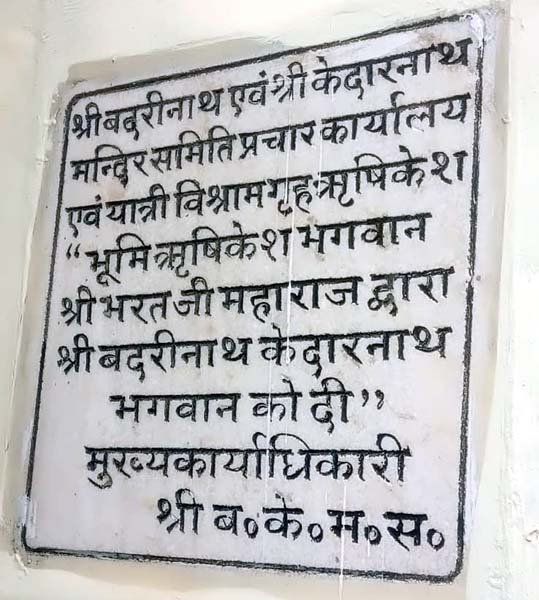 श्री बदरीनाथ एवं श्री केदारनाथ
मन्दिर समिति प्रचार कार्यालय
एवं यात्री विश्रामगृह ऋषिकेश
“भूमि ऋषिकेश भगवान
श्री भरत जी महाराज द्वारा
श्री बदरीनाथ केदारनाथ
भगवान को दी”
मुख्यकार्याधिकारी
श्री ब० के० म० स०